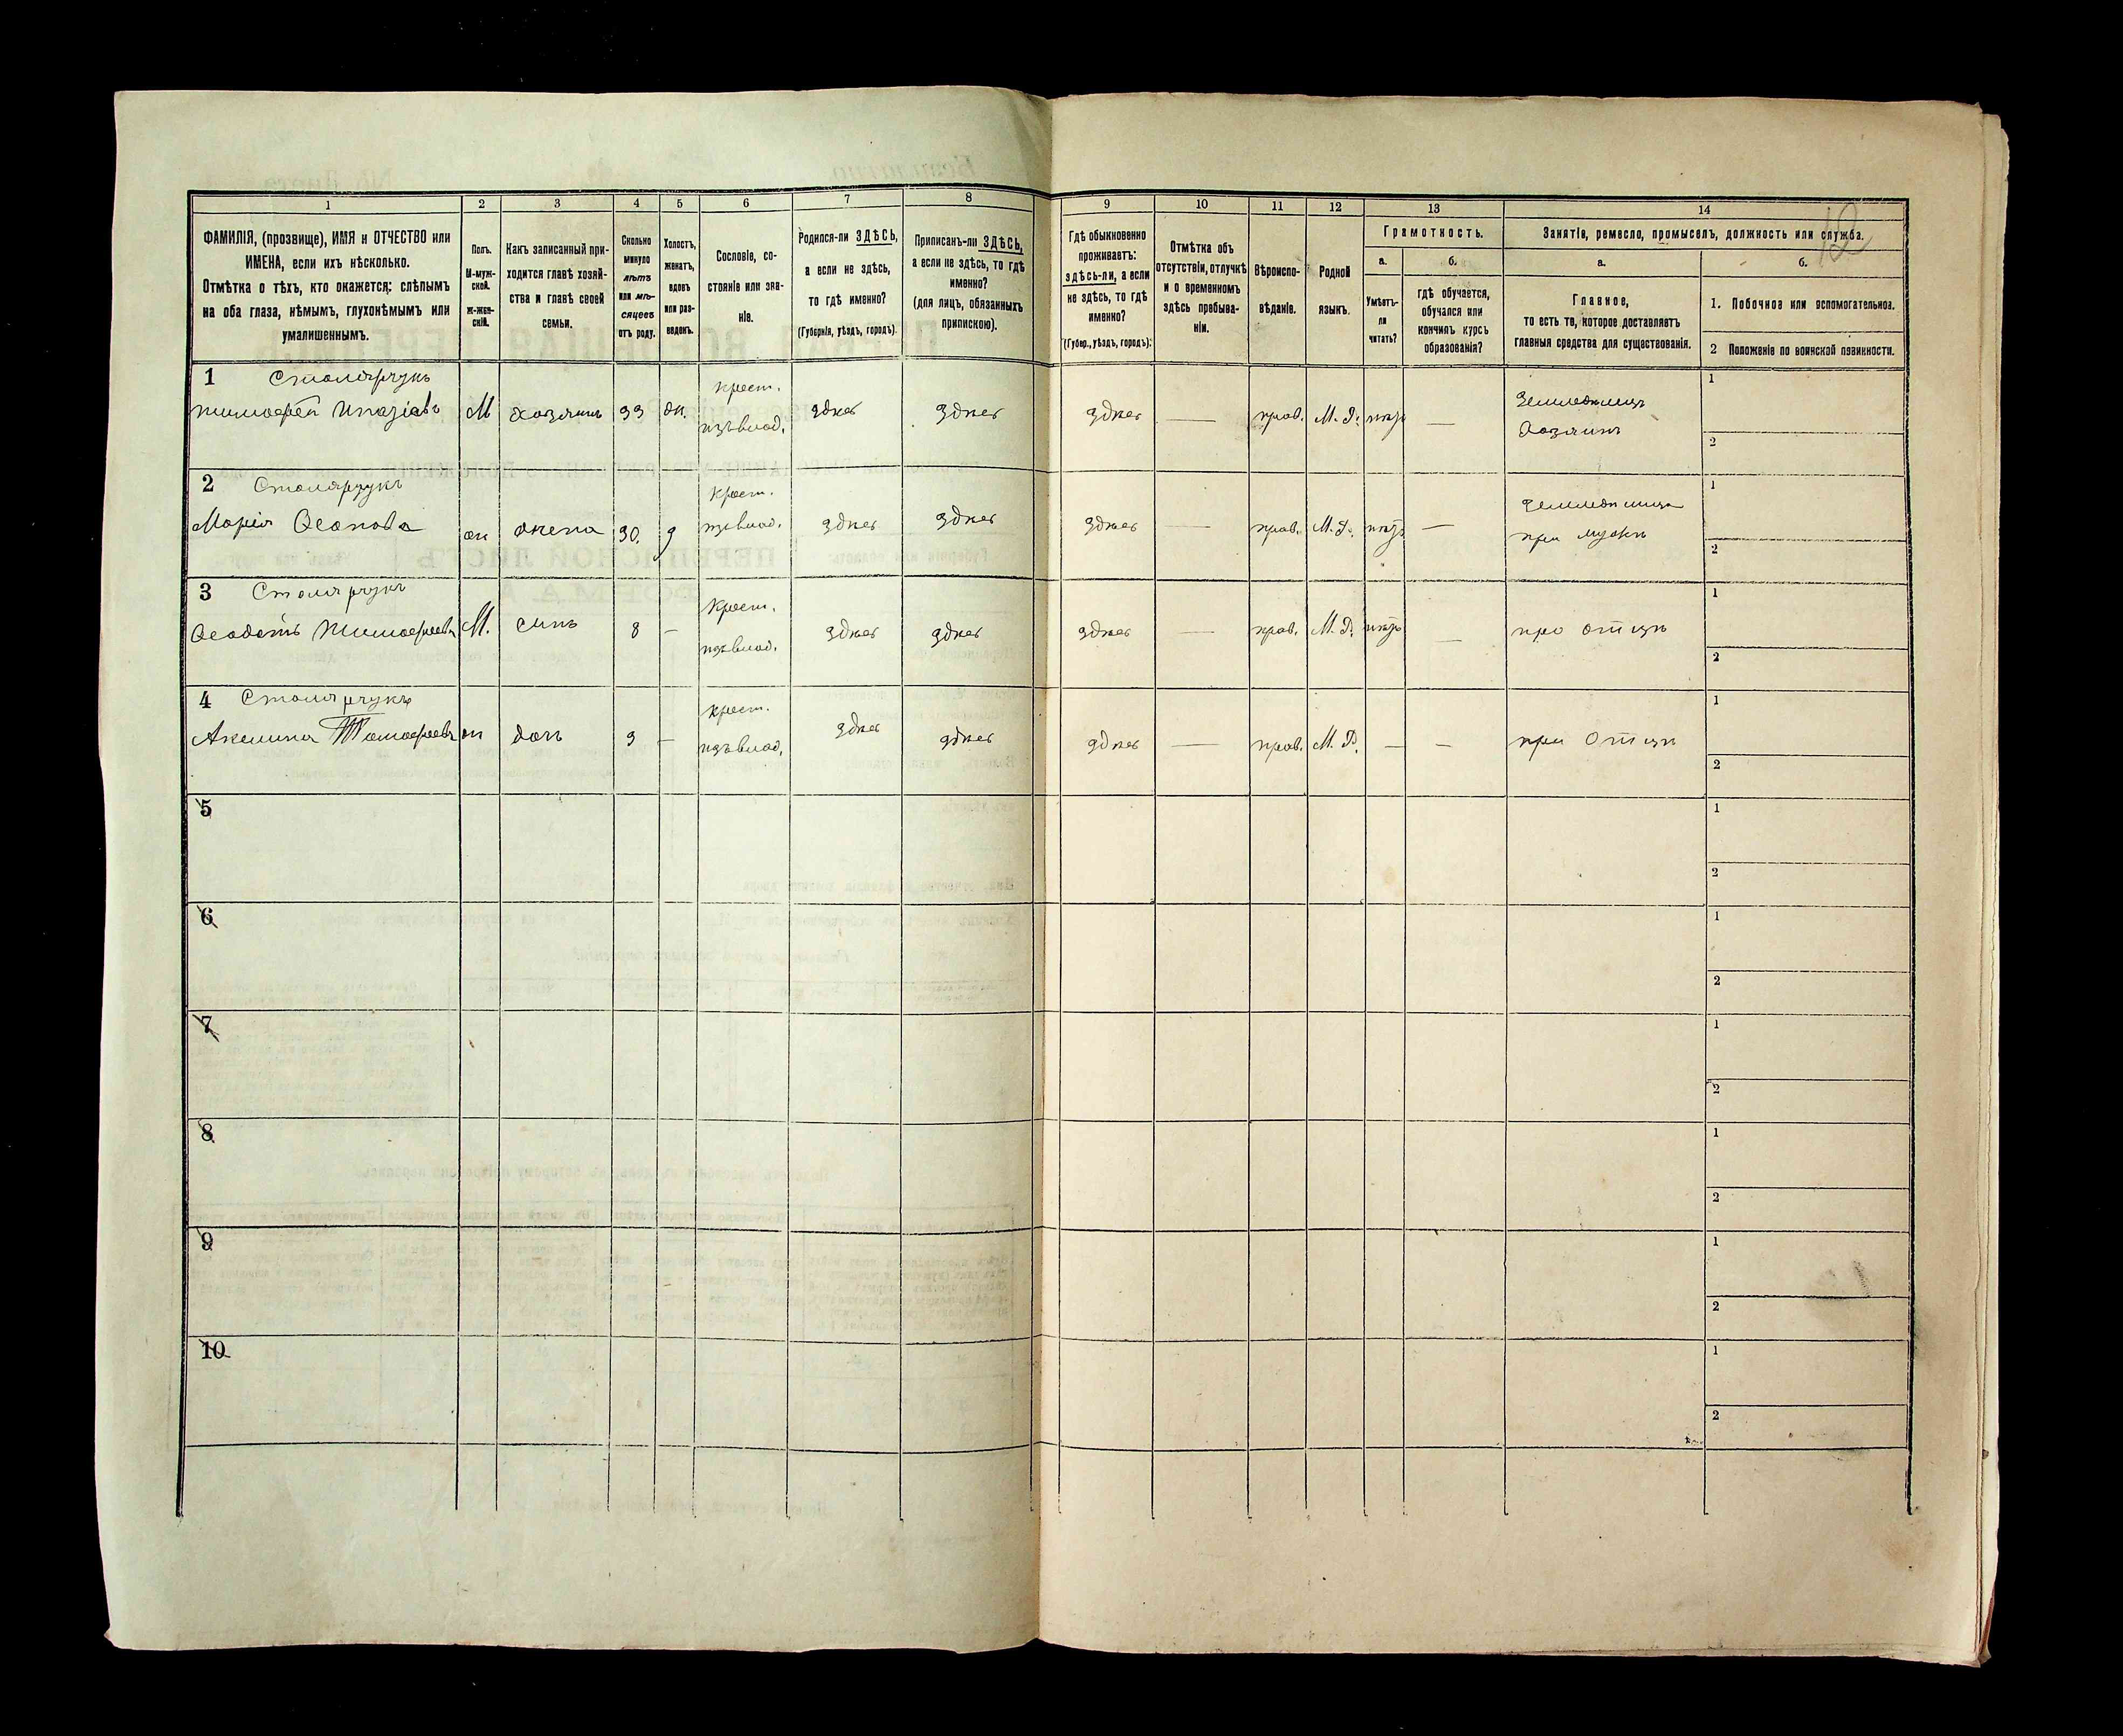 1 2 3 4 5 6 7 8 9 10 11 12 13 14
ФАМИЛІЯ, (прозвище), ИМЯ и ОТЧЕСТВО или
ИМЕНА, если ихъ нѣсколько.
Отмѣтка о тѣхъ, кто окажется: слѣпымъ
на оба глаза, нѣмымъ, глухонѣмымъ или
умалишеннымъ.
Полъ.
М-муж-
ской.
ж-жен-
скій.
Какъ записанный при-
ходится главѣ хозяй-
ства и главѣ своей
семьи.
Сколько
минуло
лѣтъ
или мѣ-
сяцевъ
отъ роду.
Холостъ,
женатъ,
вдовъ
или раз-
веденъ.
Сословіе, со-
стояніе или зва-
ніе.
Родился-ли ЗДѢСЬ,
а если не здѣсь,
то гдѣ именно?
(Губернія, уѣздъ, городъ).
Приписанъ-ли ЗДѢСЬ,
а если не здѣсь, то гдѣ
именно?
(для лицъ, обязанныхъ
припискою).
Гдѣ обыкновенно
проживаетъ:
здѣсь-ли, а если
не здѣсь, то гдѣ
именно?
(Губер., уѣздъ, городъ).
Отмѣтка объ
отсутствіи, отлучкѣ
и о временномъ
здѣсь пребыва-
ніи.
Вѣроиспо-
вѣданіе.
Родной
языкъ.
Грамотность.
а.
Умѣетъ-
ли
читать?
б.
гдѣ обучается,
обучался или
кончилъ курсъ
образованія?
Занятіе, ремесло, промыселъ, должность или служба.
12
а.
Главное,
то есть то, которое доставляетъ
главныя средства для существованія.
б.
1. Побочное или вспомогательное.
2 Положеніе по воинской повинности.
1 Столярчукъ
Тимофей Игнатіевъ М хозяинъ 33 ж. крест. изъ влад. здѣсь здѣсь здѣсь — прав. М. Р. нѣтъ — Земледѣлецъ Хозяинъ
1
2
2 Столярчукъ
Марія Осипова ж жена 30. з крест. изъ влад. здѣсь здѣсь здѣсь — прав. М. Р. нѣтъ — Земледѣлица при мужѣ
1
2
3 Столярчукъ
Ѳеодотъ Тимофеевъ М. сынъ 8 — Крест. изъ влад. здѣсь здѣсь здѣсь — прав. М. Р. нѣтъ — при отцѣ
1
2
4 Столярчукъ
Акелина Тимофеева ж дочь 3 — крест. изъ влад. здѣсь здѣсь здѣсь — прав. М. Р. — — при отцѣ
1
2
5
1
2
6
1
2
7
1
2
8
1
2
9
1
2
10
1
2